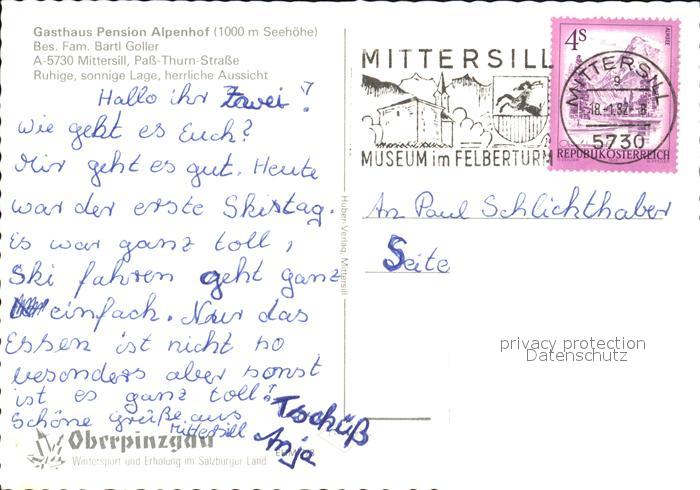 Gasthaus Pension Alpenhof (1000 m Seehöhe)
Bes. Fam. Bartl Goller
A-5730 Mittersill, Paß-Thurn-Straße
Ruhige, sonnige Lage, herrliche Aussicht
Hallo ihr Zwei!
Wie geht es Euch?
Mir geht es gut. Heute
war der erste Skitag.
Es war ganz toll,
Ski fahren geht ganz
einfach. Nur das
Essen ist nicht so
besonders aber sonst
ist es ganz toll!
Schöne Grüße aus
Mittersill
Tschüß
Anja
Oberpinzgau
Wintersport und Erholung im Salzburger Land
Huber-Verlag, Mittersill
MITTERSILL
MUSEUM im FELBERTURM
4S
ALMSEE
MITTERSILL
18.-1.82-8
5730
REPUBLIK ÖSTERREICH
An Paul Schlichthaber
Seite
privacy protection
Datenschutz